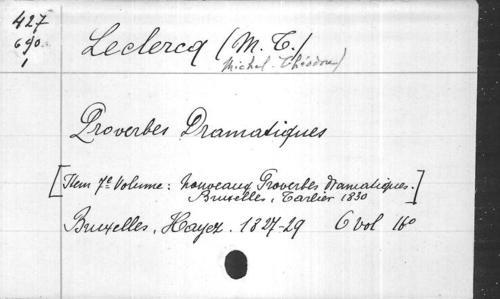 427
690
1
Leclercq (M. T.)
Michel-Théodore)
Proverbes Dramatiques
[Item 7e Volume: nouveaux Proverbes dramatiques.
Bruxelles, Tarlier 1830]
Bruxelles, Hayez. 1827-29 6 vol 16o